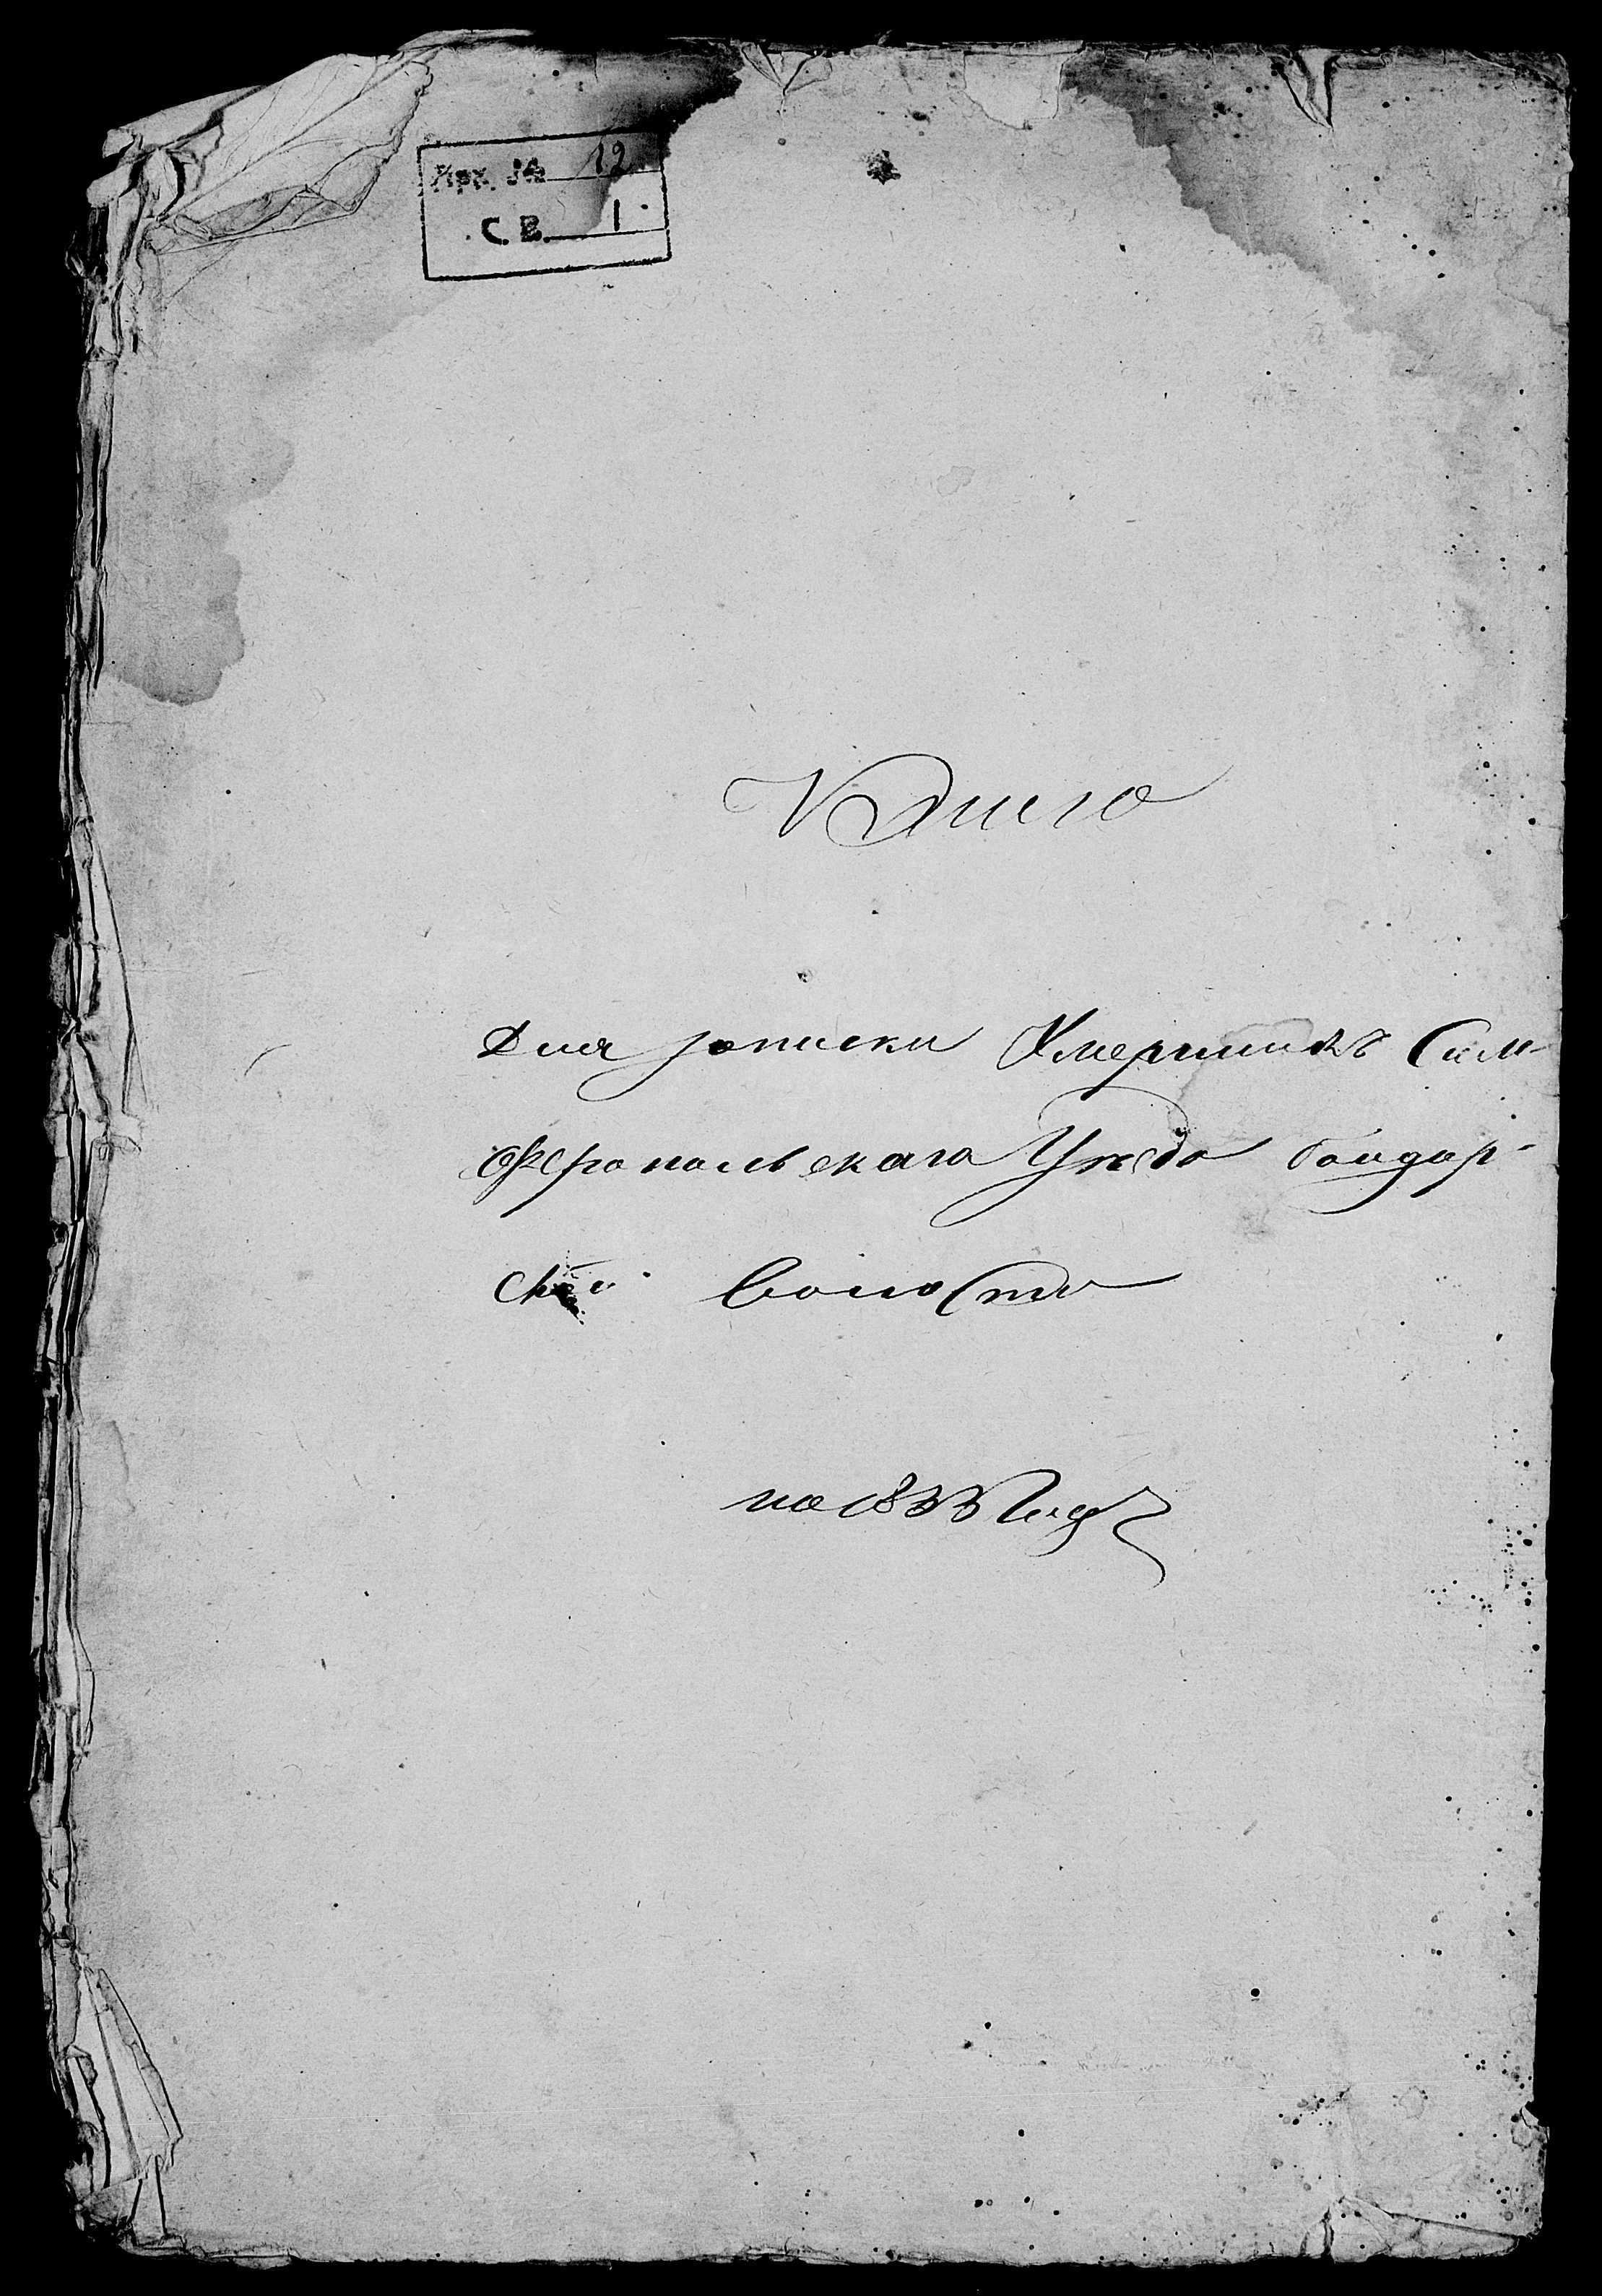 Арх. № 12
С. В. 1
Книга
Для записки Умершихъ Сим-
феропольскаго Уезда бандар-
ской Волости
на 1833 Годъ